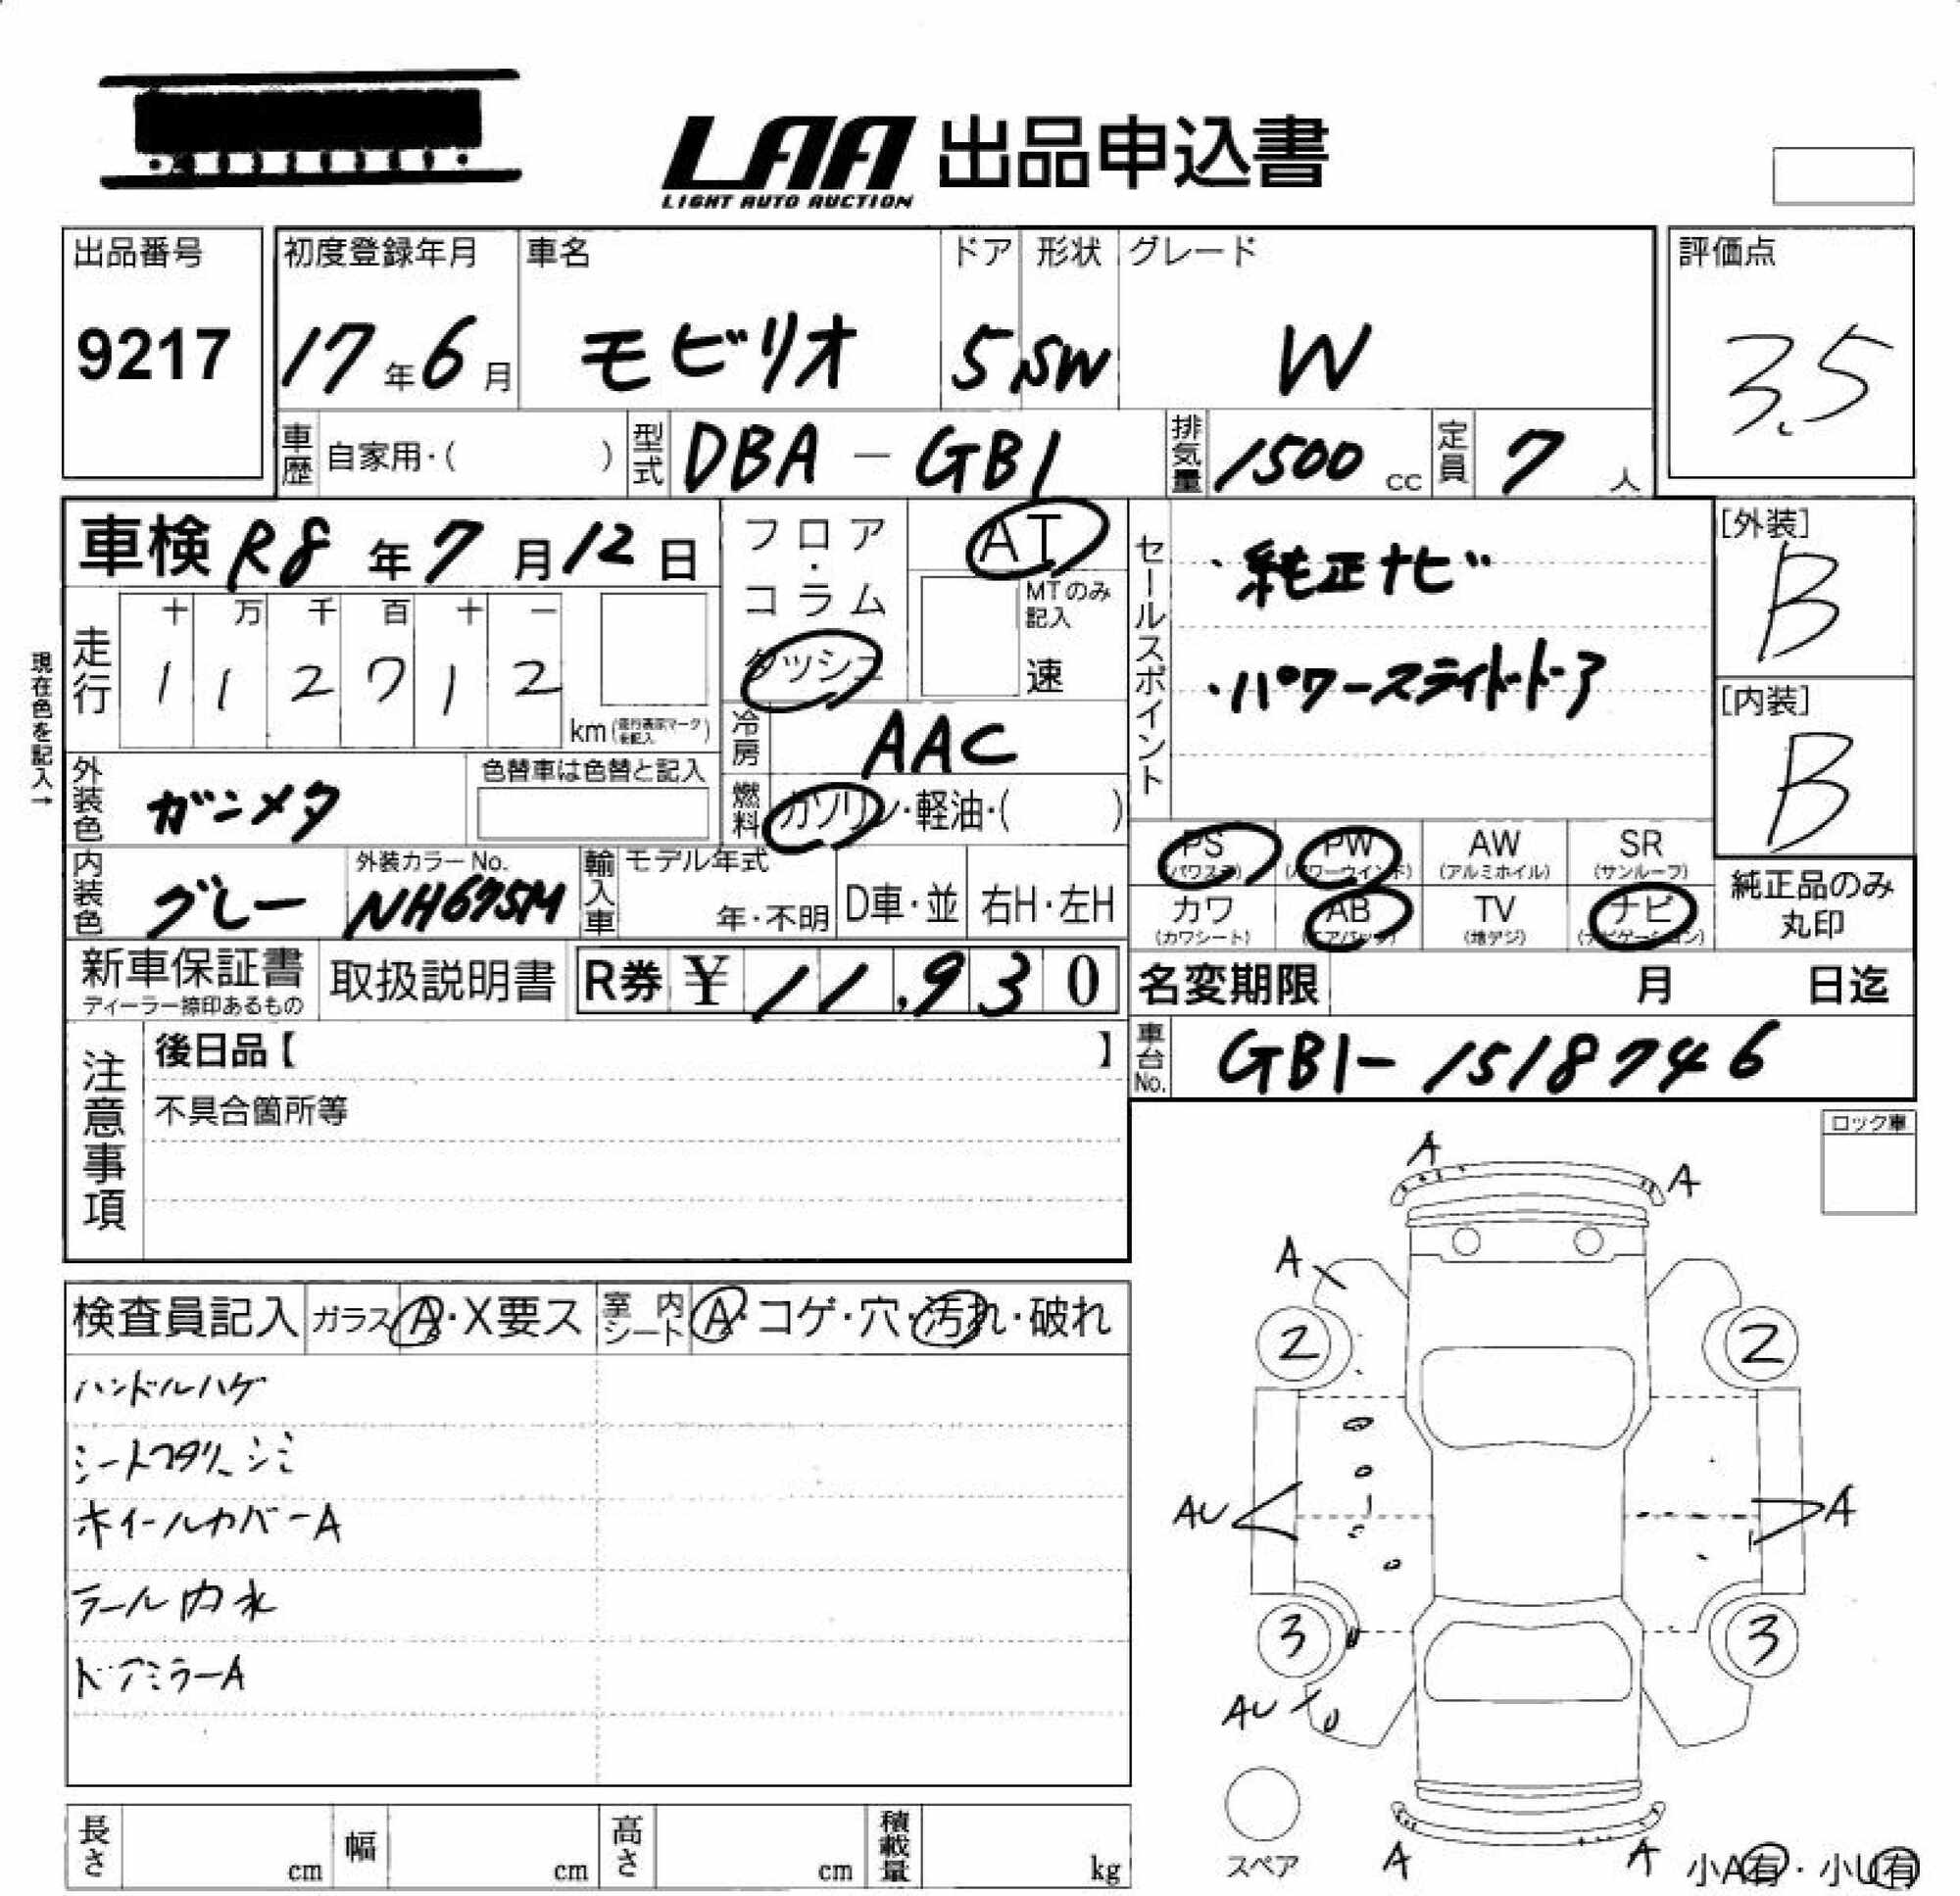 LAA 出品申込書
LIGHT AUTO AUCTION
出品番号 初度登録年月 車名 ドア 形状 グレード 評価点
9217 17年6月 モビリオ 5 SW W 3.5
車歴 自家用・( ) 型式 DBA-GB1 排気量 1500cc 定員 7人
車検 R8年7月12日 フロア・コラム ダッシュ AT
MTのみ記入 速
セールスポイント
・純正ナビ
・パワースライドドア
[外装] B
[内装] B
現在色を記入→
走行 十 万 千 百 十 一
1 1 2 7 1 2
km(走行表示マークを記入)
冷房 AAC
外装色 ガンメタ 色替車は色替と記入
燃料 ガソリン・軽油・( )
内装色 グレー 外装カラーNo. NH675M 輸入車 モデル年式 年・不明 D車・並 右H・左H
PS(パワステ) PW(パワーウインド) AW(アルミホイル) SR(サンルーフ)
カワ(カワシート) AB(エアバック) TV(地デジ) ナビ(ナビゲーション)
純正品のみ丸印
新車保証書 ディーラー捺印あるもの 取扱説明書 R券 ¥ 11,930
名変期限 月 日迄
車台No. GB1-1518746
注意事項 後日品【 】
不具合箇所等
ロック車
検査員記入 ガラス A・X要ス 室内シート A・コゲ・穴・汚れ・破れ
ハンドルハゲ
シートヘタリ、シミ
ホイールカバーA
テール内水
ドアミラーA
A A
A
2 2
AU A
3 3
AU
スペア
A A
小A有・小U有
長さ cm 幅 cm 高さ cm 積載量 kg